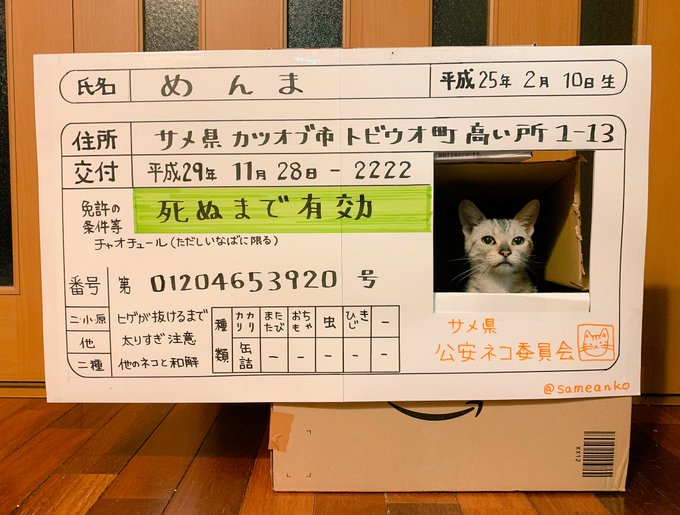 氏名 めんま 平成25年 2月 10日生
住所 サメ県 カツオブ市 トビウオ町 高い所 1-13
交付 平成29年 11月 28日 - 2222
免許の
条件等
死ぬまで有効
チャオチュール(ただしいなばに限る)
番号 第 01204653920 号
二・小・原 ヒゲが抜けるまで
他 太りすぎ注意
二種 他のネコと和解
種類
カリカリ またたび おもちゃ 虫 ひじき -
缶詰 - - - - -
サメ県
公安ネコ委員会
@sameanko
XX12